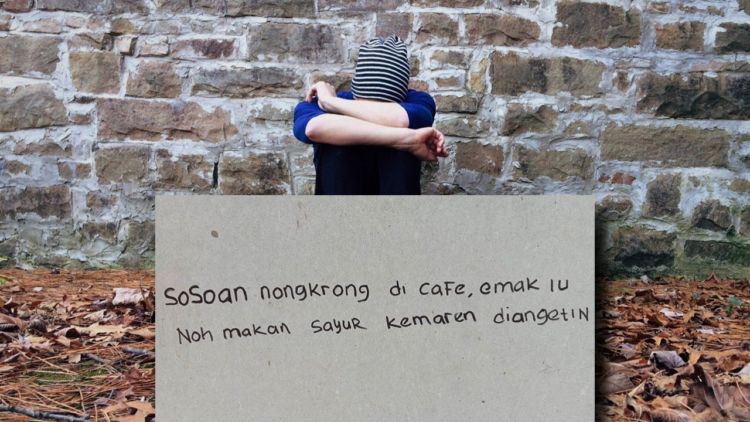 SoSoan nongkrong di caFe, emak lu
Noh makan sayuR kemaren diangetIN